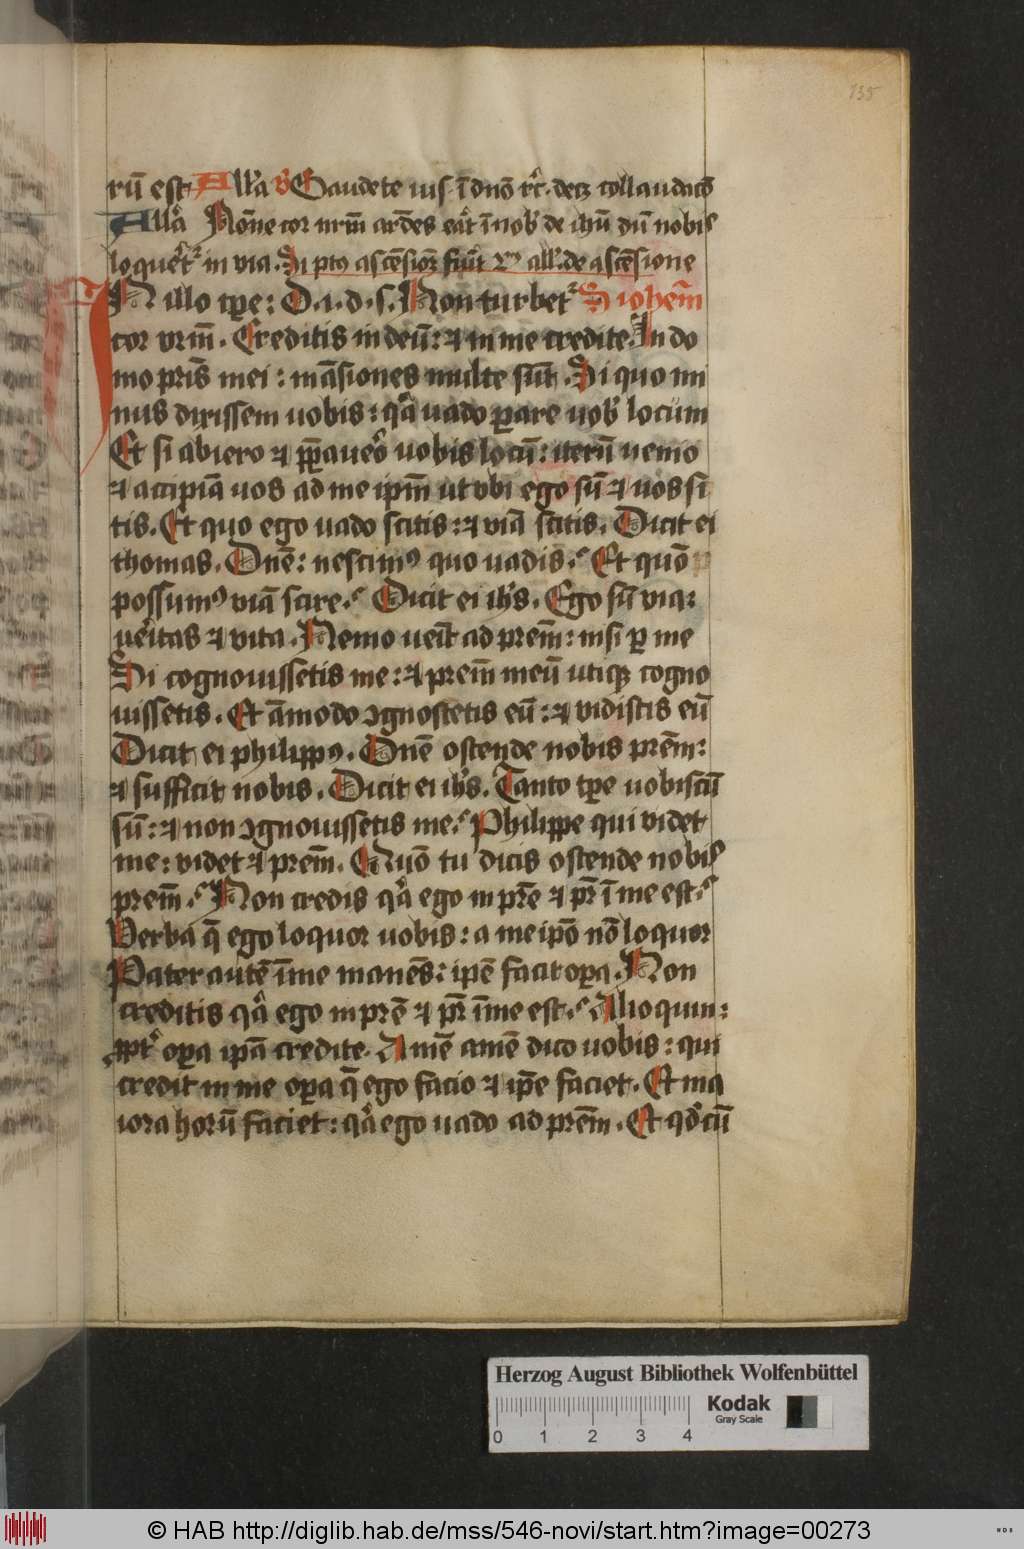 135
rū est Allꝰa v̓ Gaudete ius ī dnō rc̄. decꝫ collaudacō
Alla Nōne cor nrm̄ ardēs eāt ī nob̓ de ihū dū nobis
loqueret̓ in via. Si pt9 ascēsionꝫ fuīt R9 all̓. de ascēsione
IN illo tꝑe: D. i. d. s. Non turbet̓ S iohem̄
cor vrm̄. Creditis in deū: ⁊ in me credite. In do
mo pris̄ mei: māsiones multe sūt. Si quo mi
nus dixissem uobis: qa̓ uado ꝑare uob̓ locum
Et si abiero ⁊ p̄ꝑaueo̓ uobis locū: iterū uenio
⁊ accipiā uos ad me ipm̄ ut vbi ego sū ⁊ uos si
tis. Et quo ego uado scitis: ⁊ viā scitis. Dicit ei
thomas. Dnē: nescim9 quo uadis. Et quō
possum9 viā scire. Dicit ei ih̓s. Ego sū via:
ueītas ⁊ vita. Nemo ueīt ad prem̄: nisi ꝑ me
Si cognouissetis me: ⁊ prem̄ meū utiqꝫ cogno
uissetis. Et āmodo ꝯgnoscetis eū: ⁊ vidistis eū
Dicit ei philipp9. Dnē ostende nobis prēm:
⁊ sufficit nobis. Dicit ei ih̓s. Tanto tꝑe uobiscū
sū: ⁊ non ꝯgnouissetis me. Philippe qui videt
me: videt ⁊ prem̄. Quō tu dicis ostende nobis
prem̄. Non credis qa̓ ego in pr̄e ⁊ pr̄ ī me est.
Verba q̄ ego loquor uobis: a me ipō nō loquor
Pater autē ī me manēs: ipē facit oꝑa. Non
creditis qa̓ ego in prē ⁊ pr̄ ī me est. Alioquin:
ꝓpt̓ oꝑa ipā credite. Amē amē dico uobis: qui
credit in me oꝑa q̄ ego facio ⁊ ip̄e faciet. Et ma
iora horū faciet: qa̓ ego uado ad prēm. Et qd̓cū
Herzog August Bibliothek Wolfenbüttel
0 1 2 3 4
Kodak
Gray Scale
© HAB http://diglib.hab.de/mss/546-novi/start.htm?image=00273